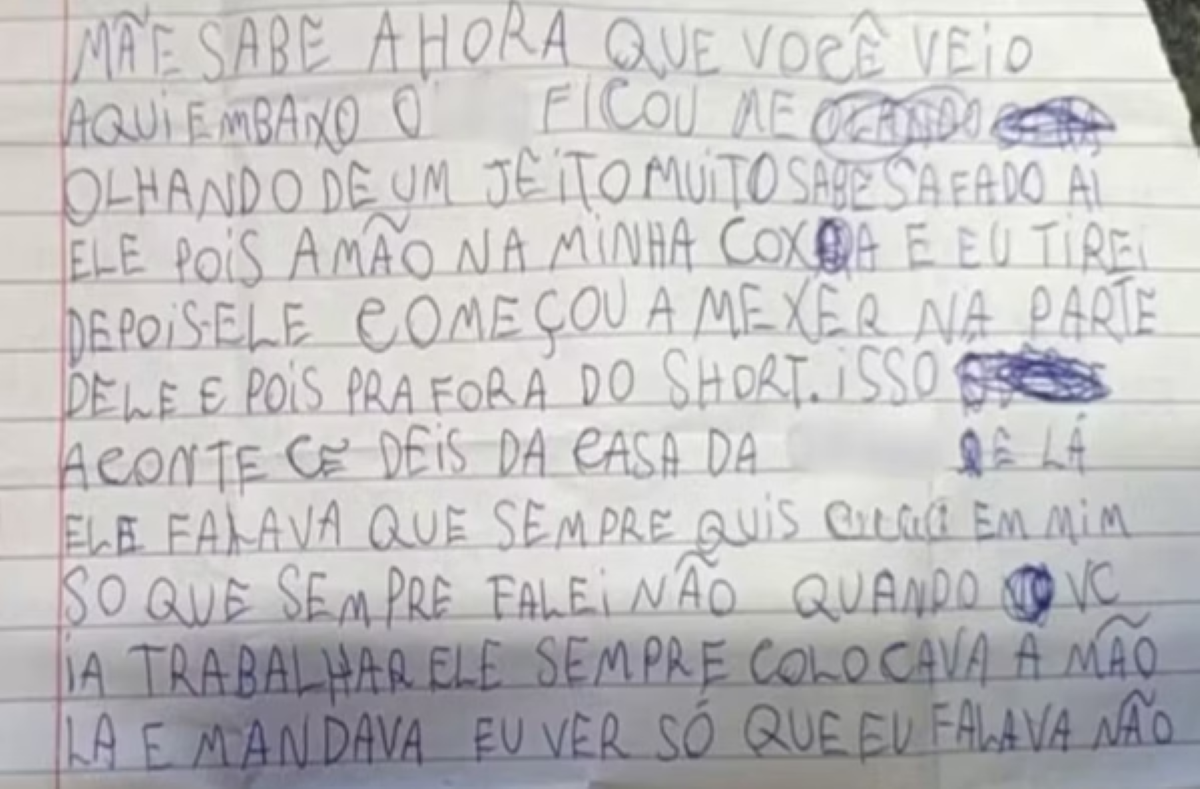 MÃE SABE A HORA QUE VOCÊ VEIO
AQUI EMBAIXO O FICOU ME
OLHANDO DE UM JEITO MUITO SABE SAFADO AI
ELE POIS A MÃO NA MINHA COXA E EU TIREI
DEPOIS ELE COMEÇOU A MEXER NA PARTE
DELE E POIS PRA FORA DO SHORT. ISSO
ACONTE CE DEIS DA CASA DA E LÁ
ELE FALAVA QUE SEMPRE QUIS EM MIM
SO QUE SEMPRE FALEI NÃO QUANDO VC
IA TRABALHAR ELE SEMPRE COLOCAVA A MÃO
LA E MANDAVA EU VER SÓ QUE EU FALAVA NÃO